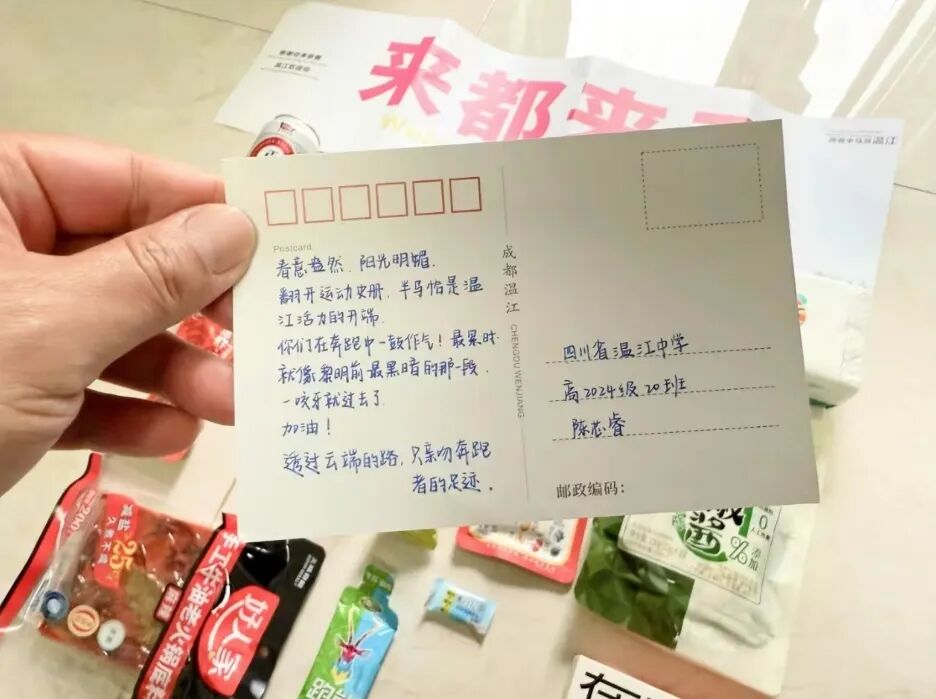 来都来
Postcard
春意盎然，阳光明媚.
翻开运动史册，半马恰是温
江活力的开端.
你们在奔跑中一鼓作气！最累时
就像黎明前最黑暗的那一段，
一咬牙就过去了.
加油！
透过云端的路，只亲吻奔跑
者的足迹。
成都温江 CHENGDU WENJIANG
四川省温江中学
高2024级20班
陈芯睿
邮政编码：
减盐
25%
手工牛油老火锅底料
好人家
0